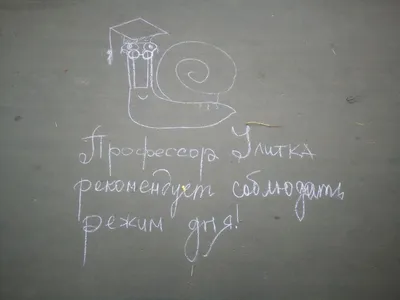 Профессор Улитка
рекомендует соблюдать
режим дня!